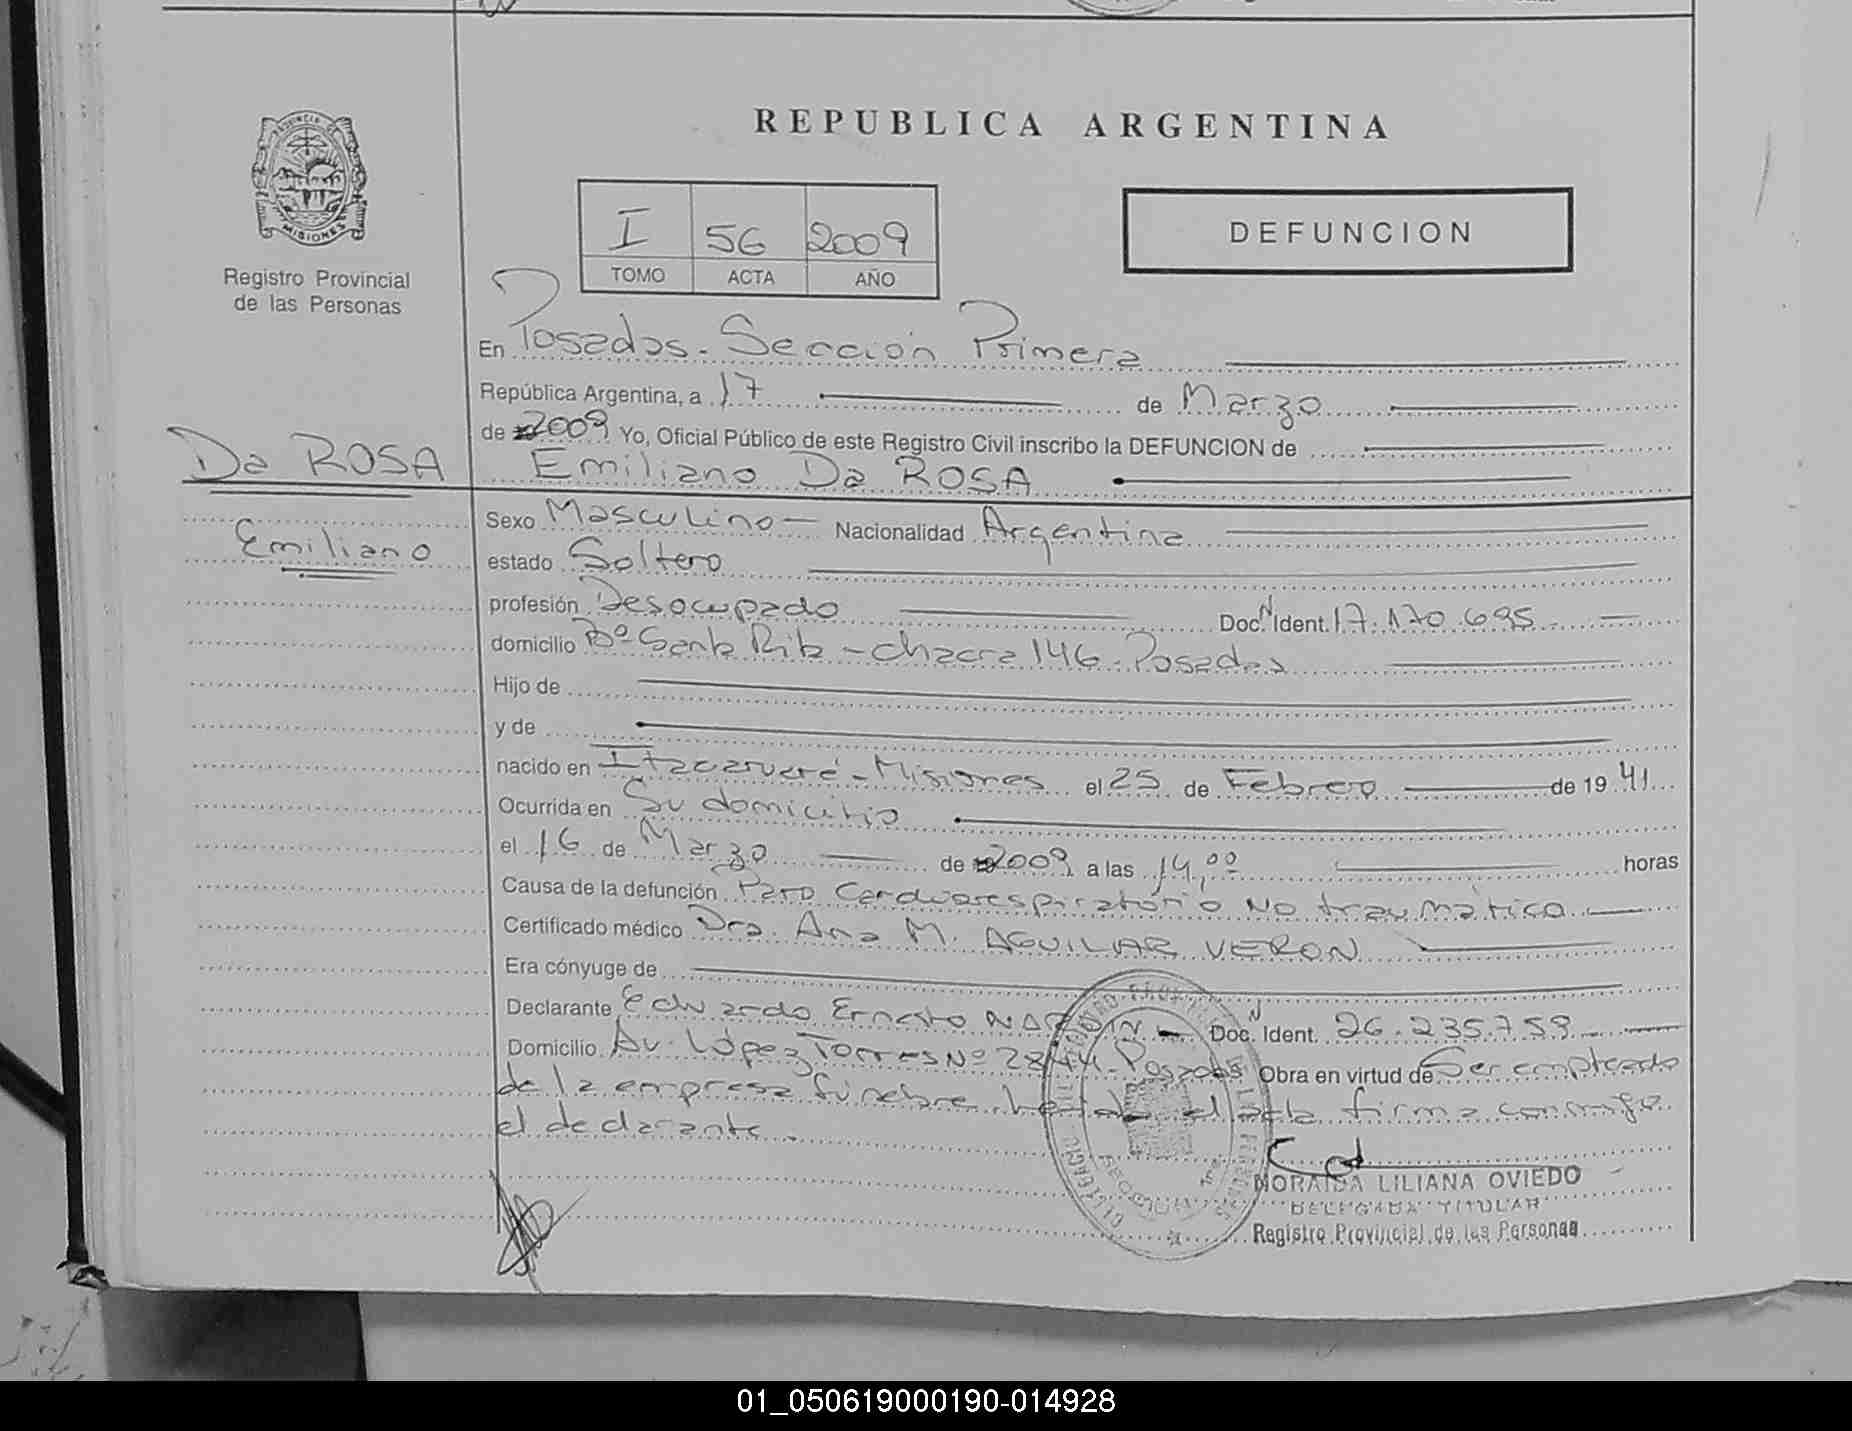 PROVINCIA DE
MISIONES
Registro Provincial
de las Personas
REPUBLICA ARGENTINA
I 56 2009
TOMO ACTA AÑO
DEFUNCION
En Posadas - Sección Primera
República Argentina, a 17 de Marzo
de 2009 Yo, Oficial Público de este Registro Civil inscribo la DEFUNCION de
Da ROSA Emiliano Da ROSA
Emiliano
Sexo Masculino - Nacionalidad Argentina
estado Soltero
profesión Desocupado Doc. N Ident. 17.170.695
domicilio Bº Santa Rita - chacra 146 - Posadas
Hijo de
y de
nacido en Itacaruaré - Misiones el 25 de Febrero de 1941
Ocurrida en Su domicilio
el 16 de Marzo de 2009 a las 14,00 horas
Causa de la defunción Paro Cardiorespiratorio No traumático
Certificado médico Dra. Ana M. AGUILAR VERON
Era cónyuge de
Declarante Eduardo Ernesto Doc. N Ident. 26.235.759
Domicilio Av. López Torres Nº 2844 - Posadas Obra en virtud de Ser empleado
de la empresa fúnebre. Leída el acta firma conmigo
el declarante.
NORAIDA LILIANA OVIEDO
DELEGADA TITULAR
Registro Provincial de las Personas
01_050619000190-014928